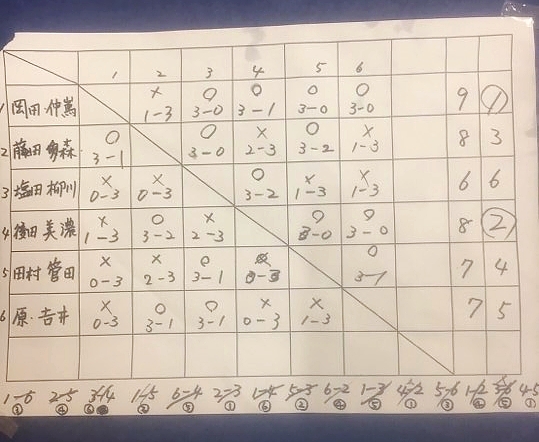 1 2 3 4 5 6
1 岡田 仲嵩 × ○ ○ ○ ○ 9 ①
1-3 3-0 3-1 3-0 3-0
2 藤田 森 ○ ○ × ○ × 8 3
3-1 3-0 2-3 3-2 1-3
3 塩田 柳川 × × ○ × × 6 6
0-3 0-3 3-2 1-3 1-3
4 美濃 × ○ × ○ ○ 8 ②
1-3 3-2 2-3 3-0 3-0
5 田村 菅田 × × ○ × ○ 7 4
0-3 2-3 3-1 0-3 3-1
6 原・吉井 × ○ ○ × × 7 5
0-3 3-1 3-1 0-3 1-3
1-6 2-5 3-4 1-5 6-4 2-3 1-4 5-3 6-2 1-3 4-2 5-6 1-2 3-6 4-5
③ ④ ⑥ ② ⑤ ① ⑥ ② ④ ⑤ ① ③ ② ⑤ ①